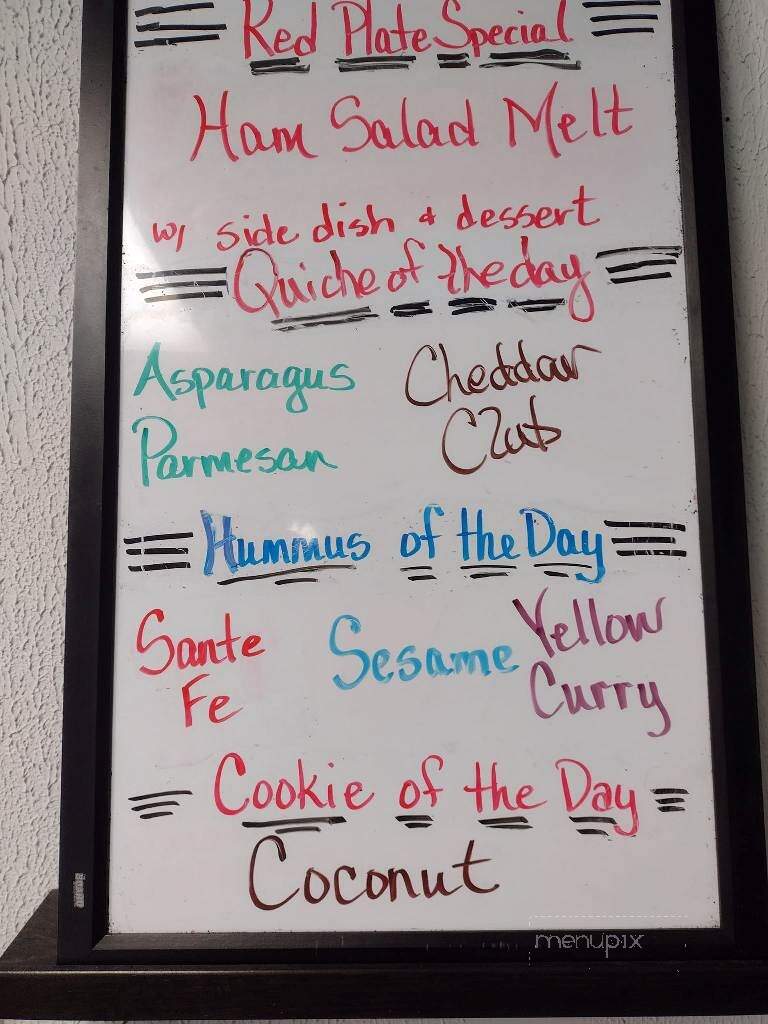 Red Plate Special
Ham Salad Melt
w/ side dish & dessert
Quiche of the day
Asparagus
Parmesan
Cheddar
Club
Hummus of the Day
Sante
Fe
Sesame
Yellow
Curry
Cookie of the Day
Coconut
BOARD
menupix